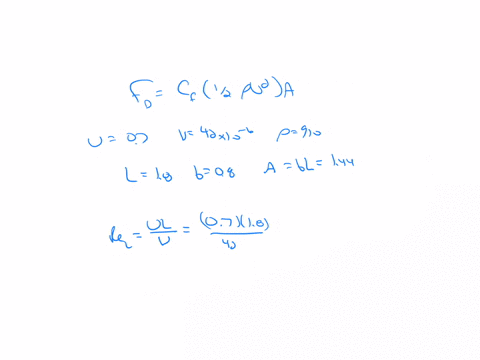 F_D = C_f (1/2 ρU²) A
U = 0.7 ν = 42x10⁻⁶ ρ = 910
L = 1.8 b = 0.8 A = bL = 1.44
Re_L = UL/ν = (0.7)(1.8)/42